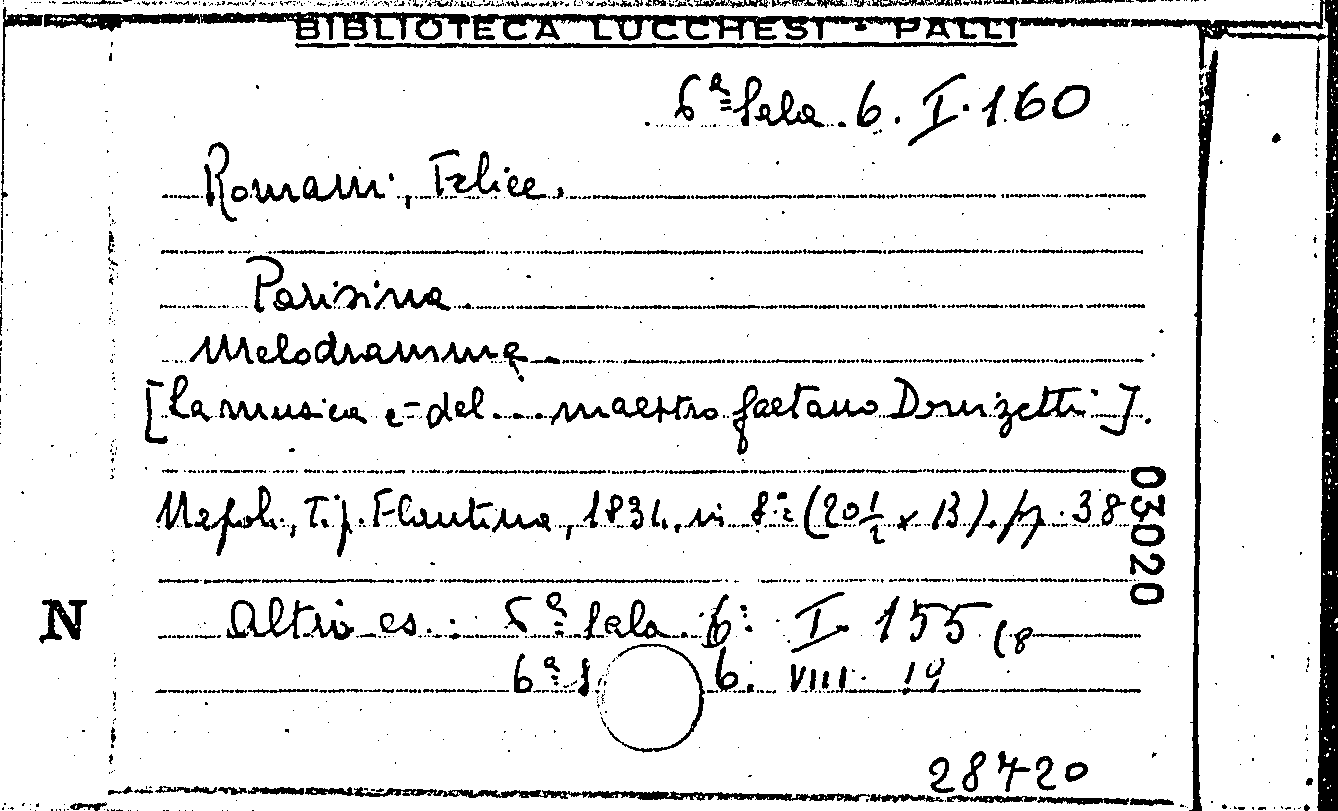 BIBLIOTECA LUCCHESI - PALLI
6ª Sala. 6. I. 160
Romani, Felice.
Parisina
Melodramma
[La musica è del... maestro Gaetano Donizetti].
Napoli, Tip. Flautina, 1834. in 8º (20½ x 13). pp. 38
03020
N
Altri es.: 6ª Sala. 6: I. 155 (8
6ª S 6. VIII. 19
28720